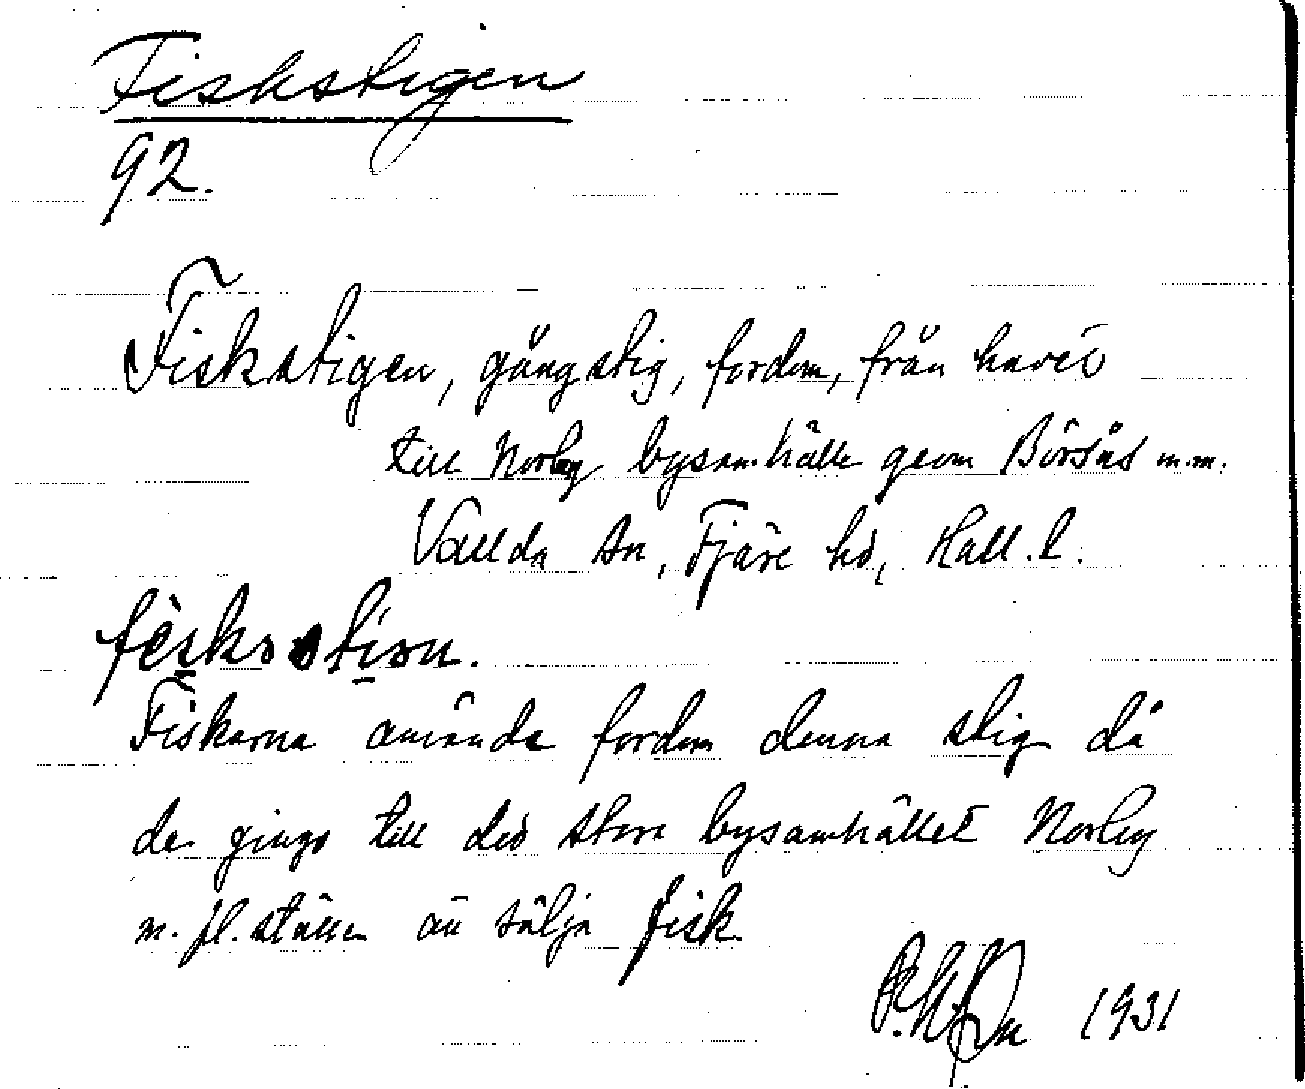 Fiskstigen
92.
Fiskstigen, gångstig, fordom, från havet
till Norby bysamhälle genom Börsås m.m.
Vallda sn, Fjäre hd, Hall. l.
Fiskarna använde fordom denna stig då
de gingo till det stora bysamhället Norby
m. fl. ställen att sälja fisk.
1931